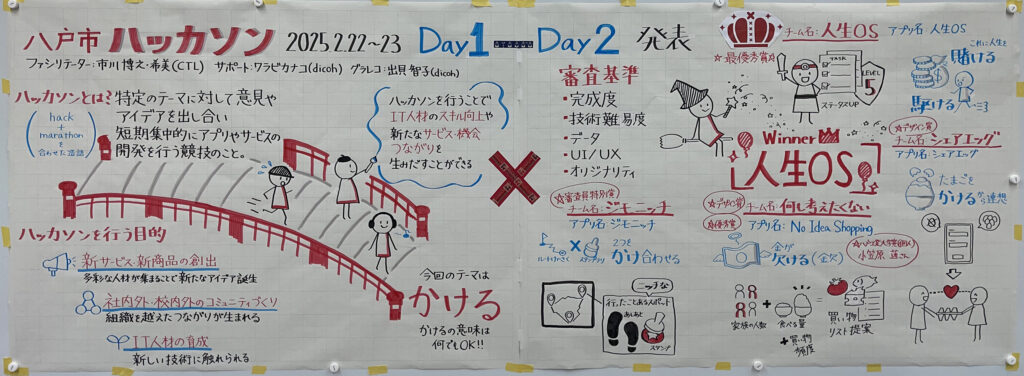 八戸市 ハッカソン 2025.2.22〜23 Day1 Day2 発表
ファシリテーター:市川 博之・希美(CTL) サポート:ワラビカナコ(dicoh) グラレコ:出貝 智子(dicoh)
ハッカソンとは?
hack
+
marathon
を
合わせた造語
特定のテーマに対して意見や
アイデアを出し合い
短期集中的にアプリやサービスの
開発を行う競技のこと。
ハッカソンを行うことで
IT人材のスキル向上や
新たなサービス・機会
つながりを
生みだすことができる
ハッカソンを行う目的
新サービス・新商品の創出
多彩な人材が集まることで新たなアイデア誕生
社内外・校内外のコミュニティづくり
組織を越えたつながりが生まれる
IT人材の育成
新しい技術に触れられる
今回のテーマは
かける
かけるの意味は
何でもOK!!
審査基準
・完成度
・技術難易度
・データ
・UI/UX
・オリジナリティ
☆最優秀賞
チーム名:人生OS アプリ名:人生OS
TASK
ステータスUP
LEVEL
5
これに人生を
賭ける
駆ける
Winner
人生OS
☆デザイン賞
チーム名:シェアエッグ
アプリ名:シェアエッグ
たまごを
かけるから連想
☆審査員特別賞
チーム名:ジモニッチ
アプリ名:ジモニッチ
スタンプラリー
2つを
かけ合わせる
ニッチな
行ったことあるんスポット
スタンプ
チーム名:何も考えたくない
アプリ名:No Idea Shopping
金が
欠ける(金欠)
小笠原 蓮さん
家族の人数
+
食べる量
+買い物
頻度
=
買い物
リスト提案